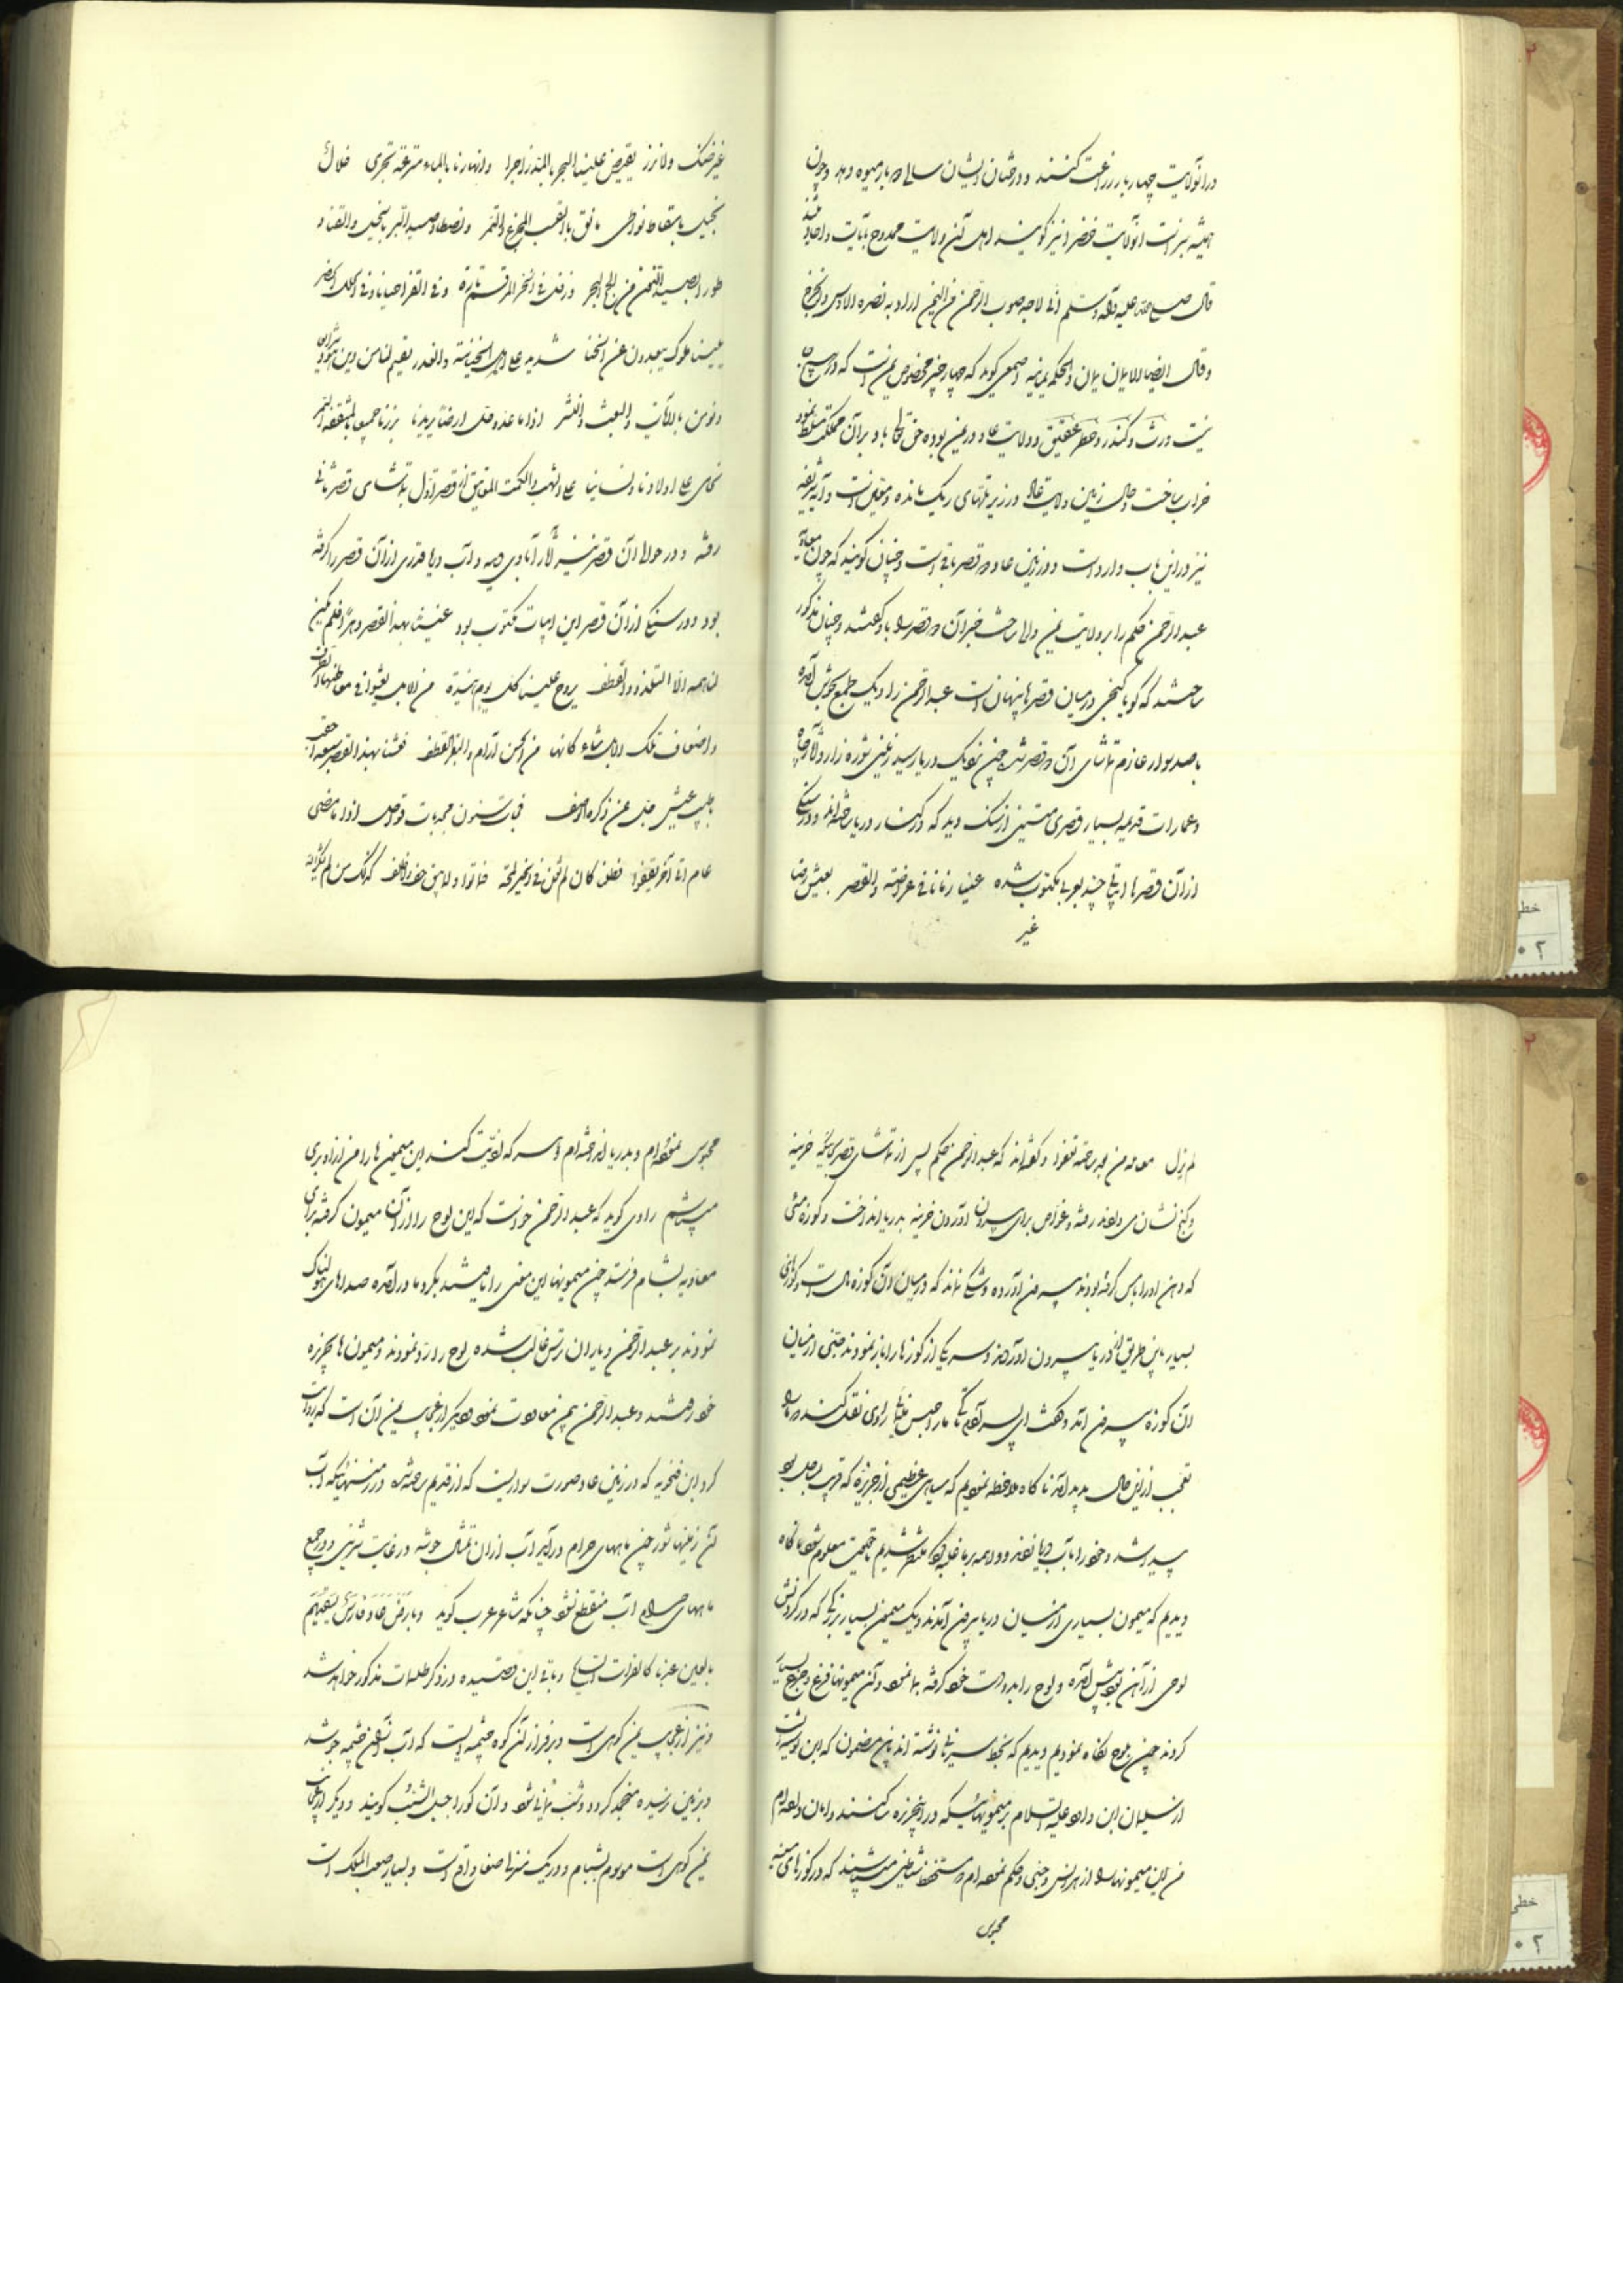 در انولایت چهار بار زراعت کنند و درختان ایشان سالی دو بار میوه دهد و چون
همیشه سبز است انولایت خضرا نیز گویند اهل آن ولایت ممدوح بآیات و احادیثند
قال صلی الله علیه و آله و سلم انی لاجد صوب الرحمن من الیمن اراد به نصره الاوس والخزرج
و قال ایضا الایمان یمان والحکمه یمانیه اصمعی گوید که چهار چیز مخصوص یمن است که در هیچ جا
نیست ورث و کندر و خطر و عقیق و ولایت عاد در یمن بوده حق تعالی باد بر آن مملکت مسلط نمود
خراب ساخت و حال زمین ولایت عاد در زیر تلهای ریک مانده و متعلق است و آیه شریفه
نیز در این باب وارد است و در زمین عاد دو قصر باقی است و چنان گویند که چون معاویه
عبد الرحمن حکم را بر ولایت یمن والی ساخت خبر آن دو قصر را باو گفتند و چنان مذکور
ساختند که گویا گنجی در میان قصرها پنهان است عبد الرحمن را دیک طمع بجوش آمده
با صد سوار عازم تماشای آن دو قصر شد چون نزدیک دریا رسید زمینی شوره زار و آثار چاه
و عمارات قدیمه بسیار قصری متین از سنک دید که در کنار دریا ساخته اند و در سنکی
از آن قصرها ابیاتی چند بعربی مکتوب شده عنینا زمانا فی عراضة والقصر بعیش رضا
غیر
غیر ضنک ولا نزر یفیض علینا البحر بالمد زاخرا وانهارنا بالماء مترعة تجری خلال
نخیل باسقات نواطر بالقسب المجزع والتمر ونصطاد صید البر بالخیل والقنا و
طورا نصید النون من لجج البحر ونرفل فی الخز المرقم تارة وفی القز احیانا وفی الحلل الخضر
یلینا ملوک یبعدون عن الخنا شدید علی اهل الخیانة والغدر یقیم لنا من دین هود شرایعا
ونومن بالآیات والبعث والنشر اذا ما عدو حل ارضا یریدنا برزنا جمیعا بالمثقفة السمر
نحامی علی اولادنا ونسائنا علی الشهب والکمت المعانیق از قصر اول بتماشای قصر ثانی
رفته و در حوالی آن قصر نیز آثار آبادی دیده و آب دریا قدری از آن قصر را گرفته
بود و در سنکی از آن قصر این ابیات مکتوب بود عنینا بهذا القصر دهرا فلم یکن
لنا همه الا التلذذ والقطف یروح علینا کل یوم هنیدة من الابل یعشو فی معاطنها الطرف
واضعاف تلک الابل شاء کانها من الحسن آرام والبقر القطف فعشنا بهذا القصر سبعة احقب
باطیب عیش جل عن ذکره الوصف فجاءت سنون مجدبات قواحل اذا ما مضی
عام اتی آخر یقفوا فظلنا کان لم نغن فی الخیر لمحة فماتوا ولم یبق خف ولا ظلف کذلک من لم یشکر الله
لم یزل معالمه من بعد ساحته تعفوا و گفته اند که عبد الرحمن حکم پس از تماشای قصر بجائیکه خزینه
و گنج نشان می دادند رفته و غواص برای بیرون آوردن خزینه بدریا انداخت و کوزه مسی
که دهن او را بمس گرفته بودند بیرون آورده و شکی نماند که در میان آن کوزه مال است و کوزهای
بسیار باین طریق از دریا بیرون آوردند و سر یکی از کوزها را باز نمودند جنی از میان
آن کوزه بیرون آمد و گفت ای پسر آدم تا کی ما را حبس نمائی راوی نقل کند که ما را
تعجب از این حال پدید آمد ناکاه ملاحظه نمودیم که سیاهی عظیمی از جزیره که قریب بساحل بود
پیدا شد و خود را بآب دریا زدند و واهمه بر ما غلبه کرد منتظر شدیم تا حقیقت معلوم شود ناکاه
دیدیم که میمون بسیاری از میان دریا بیرون آمدند و یک میمون بسیار بزرگی که در گردنش
لوحی از آهن بود پیش آمده و لوح را بدو دست خود گرفته بما نمود و آن میمونها فزع و جزع بسیار
کردند چون بلوح نگاه نمودیم دیدیم که بخط سریانی نوشته اند باین مضمون که این نوشته است
از سلیمان ابن داود علیه السلام بر میمونهائیکه در اینجزیره ساکنند و امان داده ام
من این میمونها را از هر انس و جنی و حکم نموده ام و مستحفظ شیاطین میباشند که در کوزهای مسینه
محبوس
محبوس نموده ام و بدریا انداخته ام و هر که اذیت کند این میمونها را من از او بری
میباشم راوی گوید که عبد الرحمن خواست که این لوح را از آن میمون گرفته برای
معاویه بشام فرستد چون میمونها این معنی را یافتند بگرد ما در آمده صداهای هولناک
نمودند بر عبد الرحمن و یاران ترس غالب شده لوح را رد نمودند و میمونها بجزیره
خود رفتند و عبد الرحمن بیمن معاودت نمود دیگر از عجایب یمن آن است که روایت
کرد ابن فخریه که در زمین عاد صورت سواریست که از قدیم ساخته شده در زمینهائیکه آب
آن زمینها شور چون ماههای حرام در آید آب از آن تمثال جوشد در غایت شیرینی و در جمیع
ماههای حرام آب منقطع نشود چنانکه شاعر عرب گوید وبارض عاد فارس یسقیهم
بالعین عذبا کالفرات السایح و باقی این قصیده در ذکر طلسمات مذکور خواهد شد
و نیز از عجایب یمن کوهی است و بر فراز آن کوه چشمه ایست که آب از آن چشمه جوشد
و بزمین نرسیده منجمد گردد و شب یمانی شود و آن کوه را جبل الشب گویند و دیگر از عجایب
یمن کوهی است موسوم بشبام و در یک منزلی صنعا واقع است و بسیار صعب المسلک است
خطی
۰۲